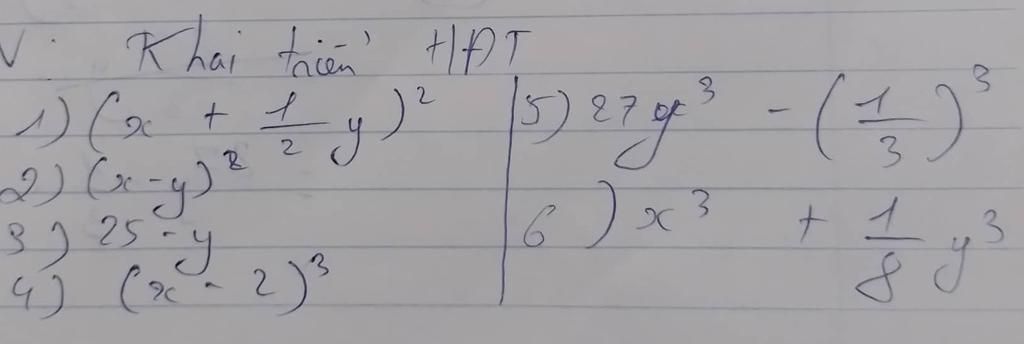 V: Khai triển HĐT
1) (x + 1/2 y)²
2) (x - y)²
3) 25 - y
4) (x - 2)³
5) 27y³ - (1/3)³
6) x³ + 1/8 y³